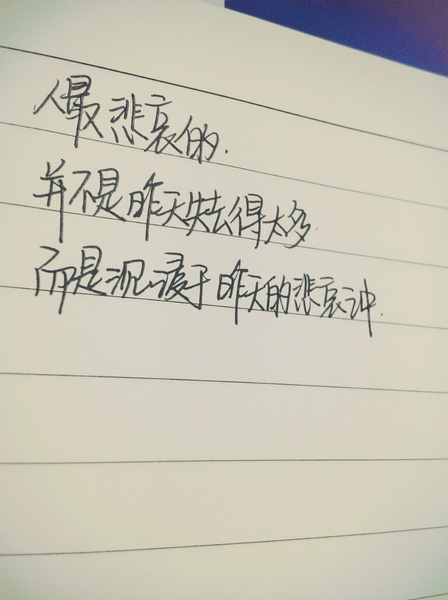 人最悲哀的.
并不是昨天失去得太多
而是沉浸于昨天的悲哀冲.